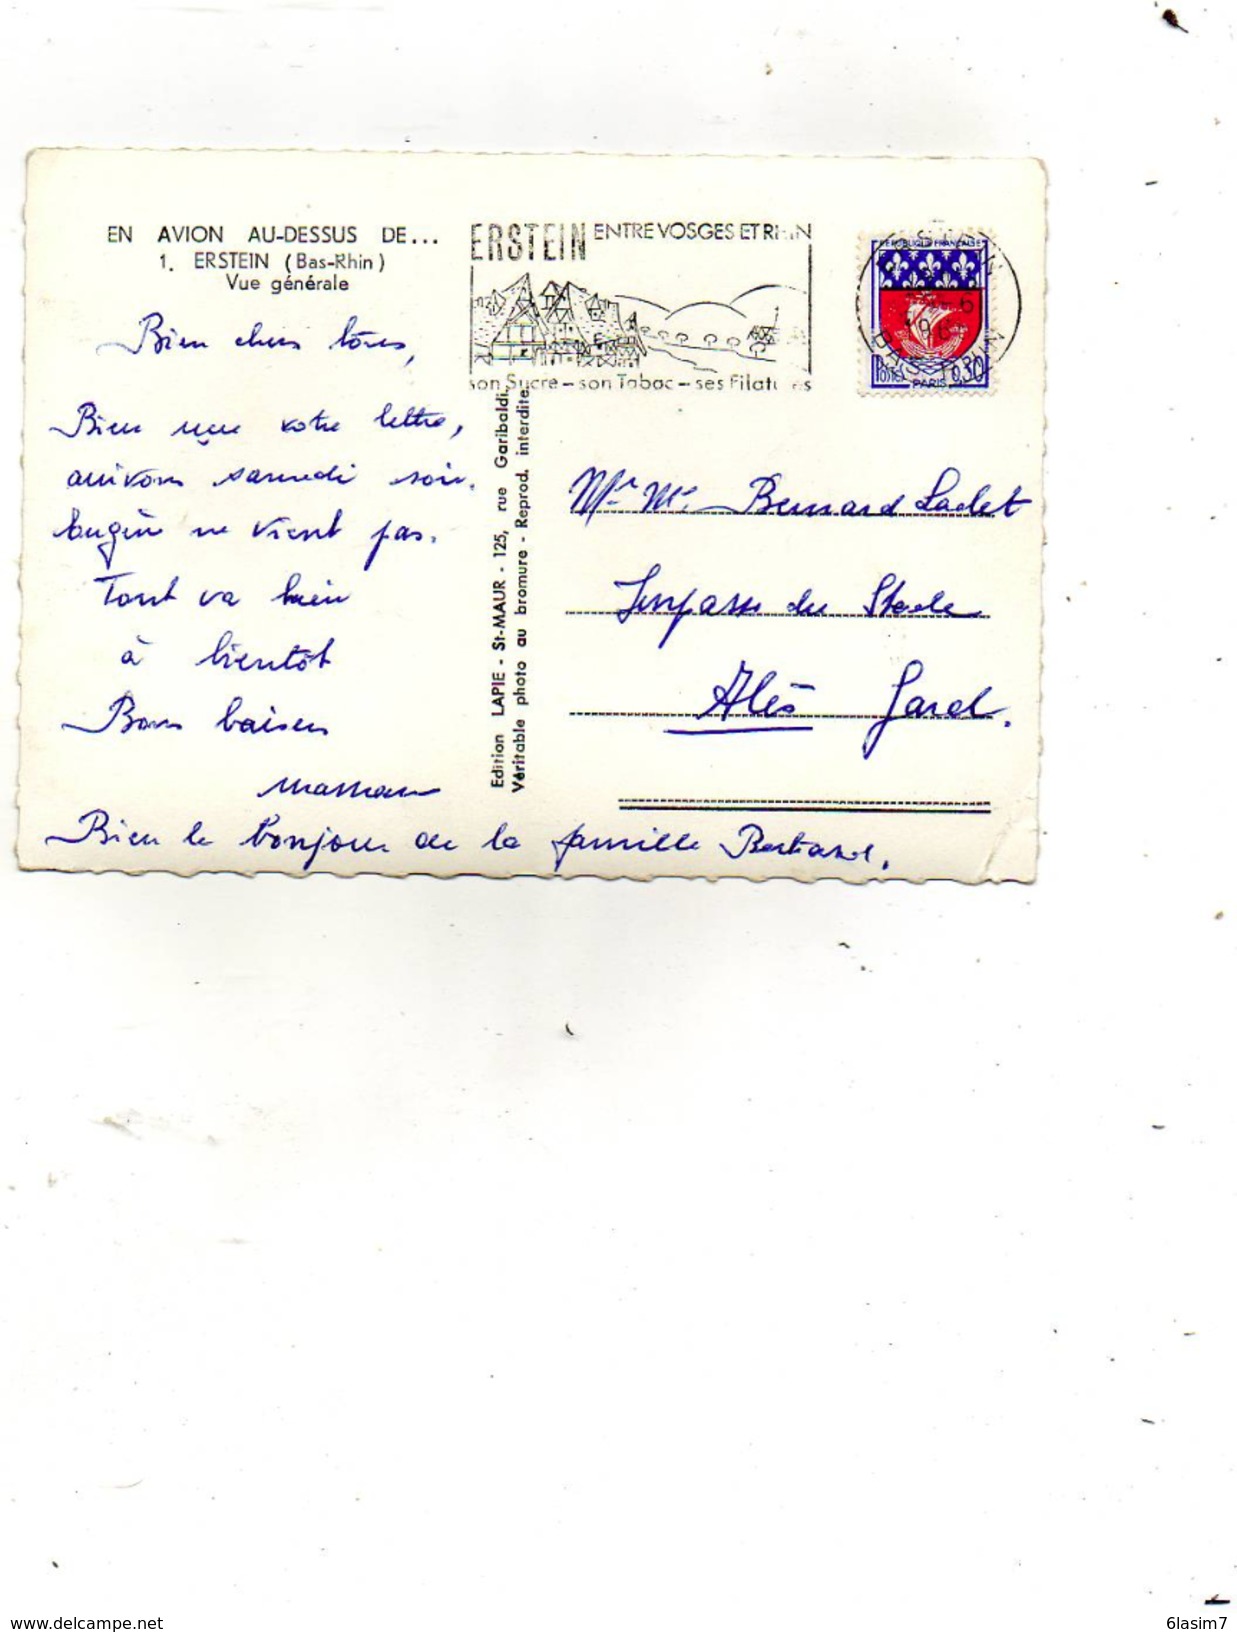 EN AVION AU-DESSUS DE...
1. ERSTEIN (Bas-Rhin)
Vue générale
ERSTEIN ENTRE VOSGES ET RHIN
son Sucre - son Tabac - ses Filatures
REPUBLIQUE FRANÇAISE
POSTES 0,30
PARIS
ERSTEIN
BAS-RHIN
Bien chers tous,
Bien reçu votre lettre,
arrivons samedi soir.
ne vient pas.
Tout va bien
à bientôt
Bons baisers
Bien le bonjour de la famille Bertrand.
Edition LAPIE - St-MAUR - 125, rue Garibaldi.
Véritable photo au bromure - Reprod. interdite.
Mr Me Bernard Ladet
Impasse du Stade
Alès Gard.
www.delcampe.net
6lasim7